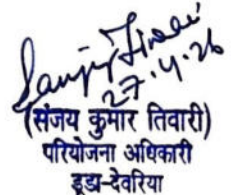 27.4.26
(संजय कुमार तिवारी)
परियोजना अधिकारी
डूडा-देवरिया